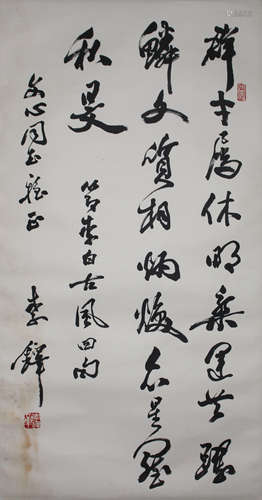 群才属休明乘运共跃
鳞文质相炳焕众星罗
秋旻 节李白古风四句
文心同志雅正
李铎